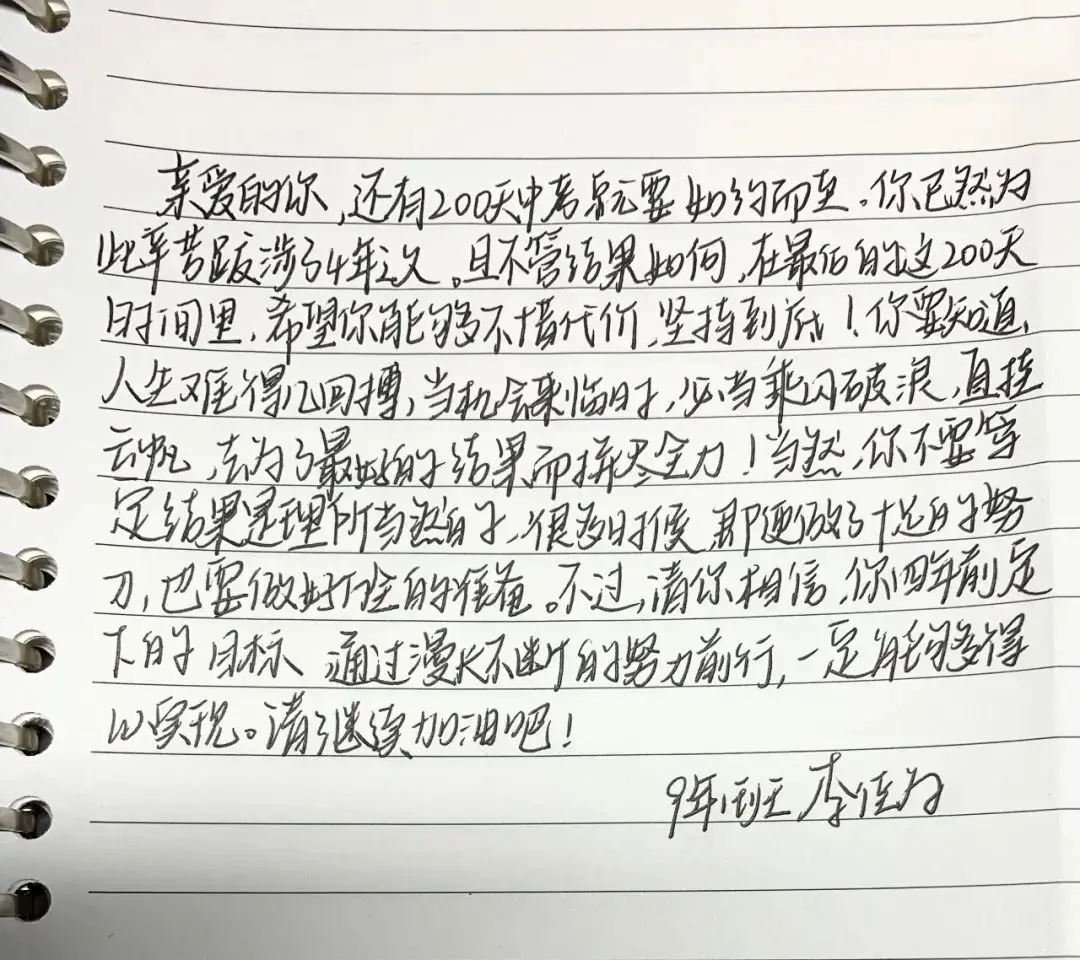 亲爱的你,还有200天中考就要如约而至。你已然为
此辛苦跋涉了4年之久。且不管结果如何,在最后的这200天
时间里,希望你能够不惜代价,坚持到底!你要知道,
人生难得几回搏,当机会来临时,必当乘风破浪,直挂
云帆,去为了最好的结果而拼尽全力!当然,你不要笃
定结果是理所当然的,很多时候,即便做了十足的努
力,也要做好万全的准备。不过,请你相信,你四年前定
下的目标 通过漫长不断的努力前行,一定能够得
以实现。请继续加油吧!
9年 班 李佳